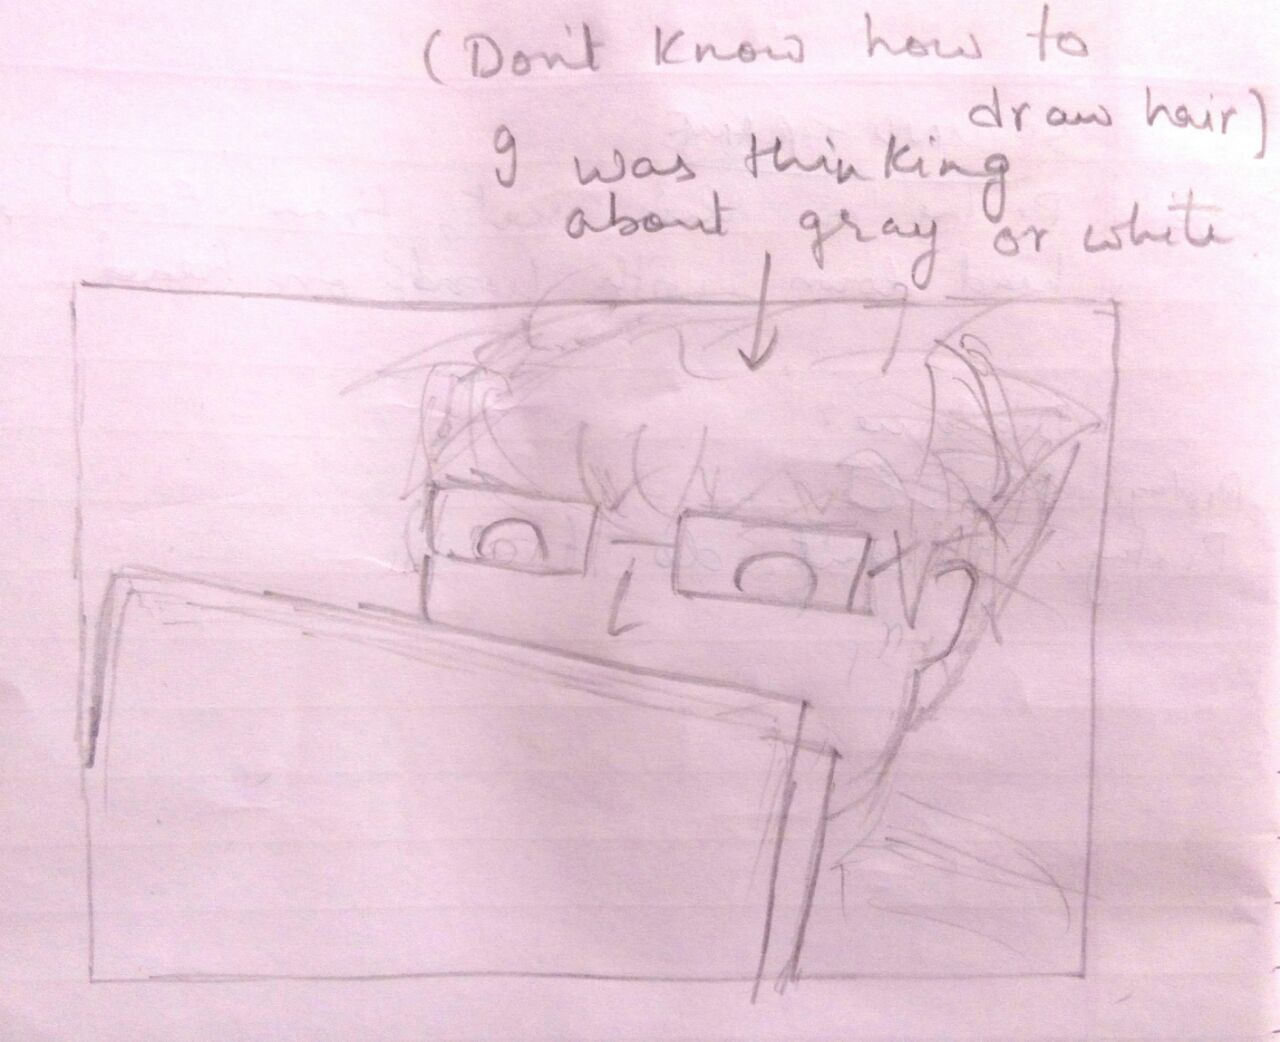 (Don't know how to
draw hair)
I was thinking
about gray or white